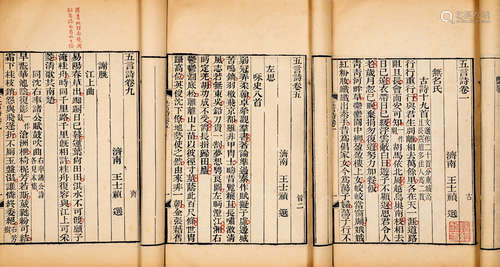 五言詩卷一
濟南 王士禎 選
無名氏
古詩十九首
行行重行行與君生別離相去萬餘里各在天一涯道路
阻且長會面安可知胡馬依北風越鳥巢南枝相去
日已遠衣帶日已緩浮雲蔽白日遊子不顧返思君令人
老歲月忽已晚棄捐勿復道努力加餐飯
青青河畔草鬱鬱園中柳盈盈樓上女皎皎當窗牖娥娥
紅粉妝纖纖出素手昔為倡家女今為蕩子婦蕩子行不
古
五言詩卷五
濟南 王士禎 選
左思
詠史八首
弱冠弄柔翰卓犖觀羣書著論準過秦作賦擬子虛邊城
苦鳴鏑羽檄飛京都雖非甲胄士疇昔覽穰苴長嘯激清
風志若無東吳鉛刀貴一割夢想騁良圖左眄澄江湘右
盼定羌胡功成不受爵長揖歸田廬
鬱鬱澗底松離離山上苗以彼徑寸莖蔭此百尺條世胄
躡高位英俊沈下僚地勢使之然由來非一朝金張藉舊
晉二
五言詩卷九
濟南 王士禎 選
謝朓
江上曲
易陽春草出踟躕日已暮蓮葉何田田淇水不可渡願子
淹桂舟時同千里路千里既相許桂舟復容與江上可采
菱清歌共南楚
同沈右率諸公賦鼓吹曲
早玩華池陰復鼓滄洲枻椅柅芳若斯葳蕤紛可結
霜下桂枝銷怨與飛蓬折不厠玉盤滋誰憐終委絕
齊